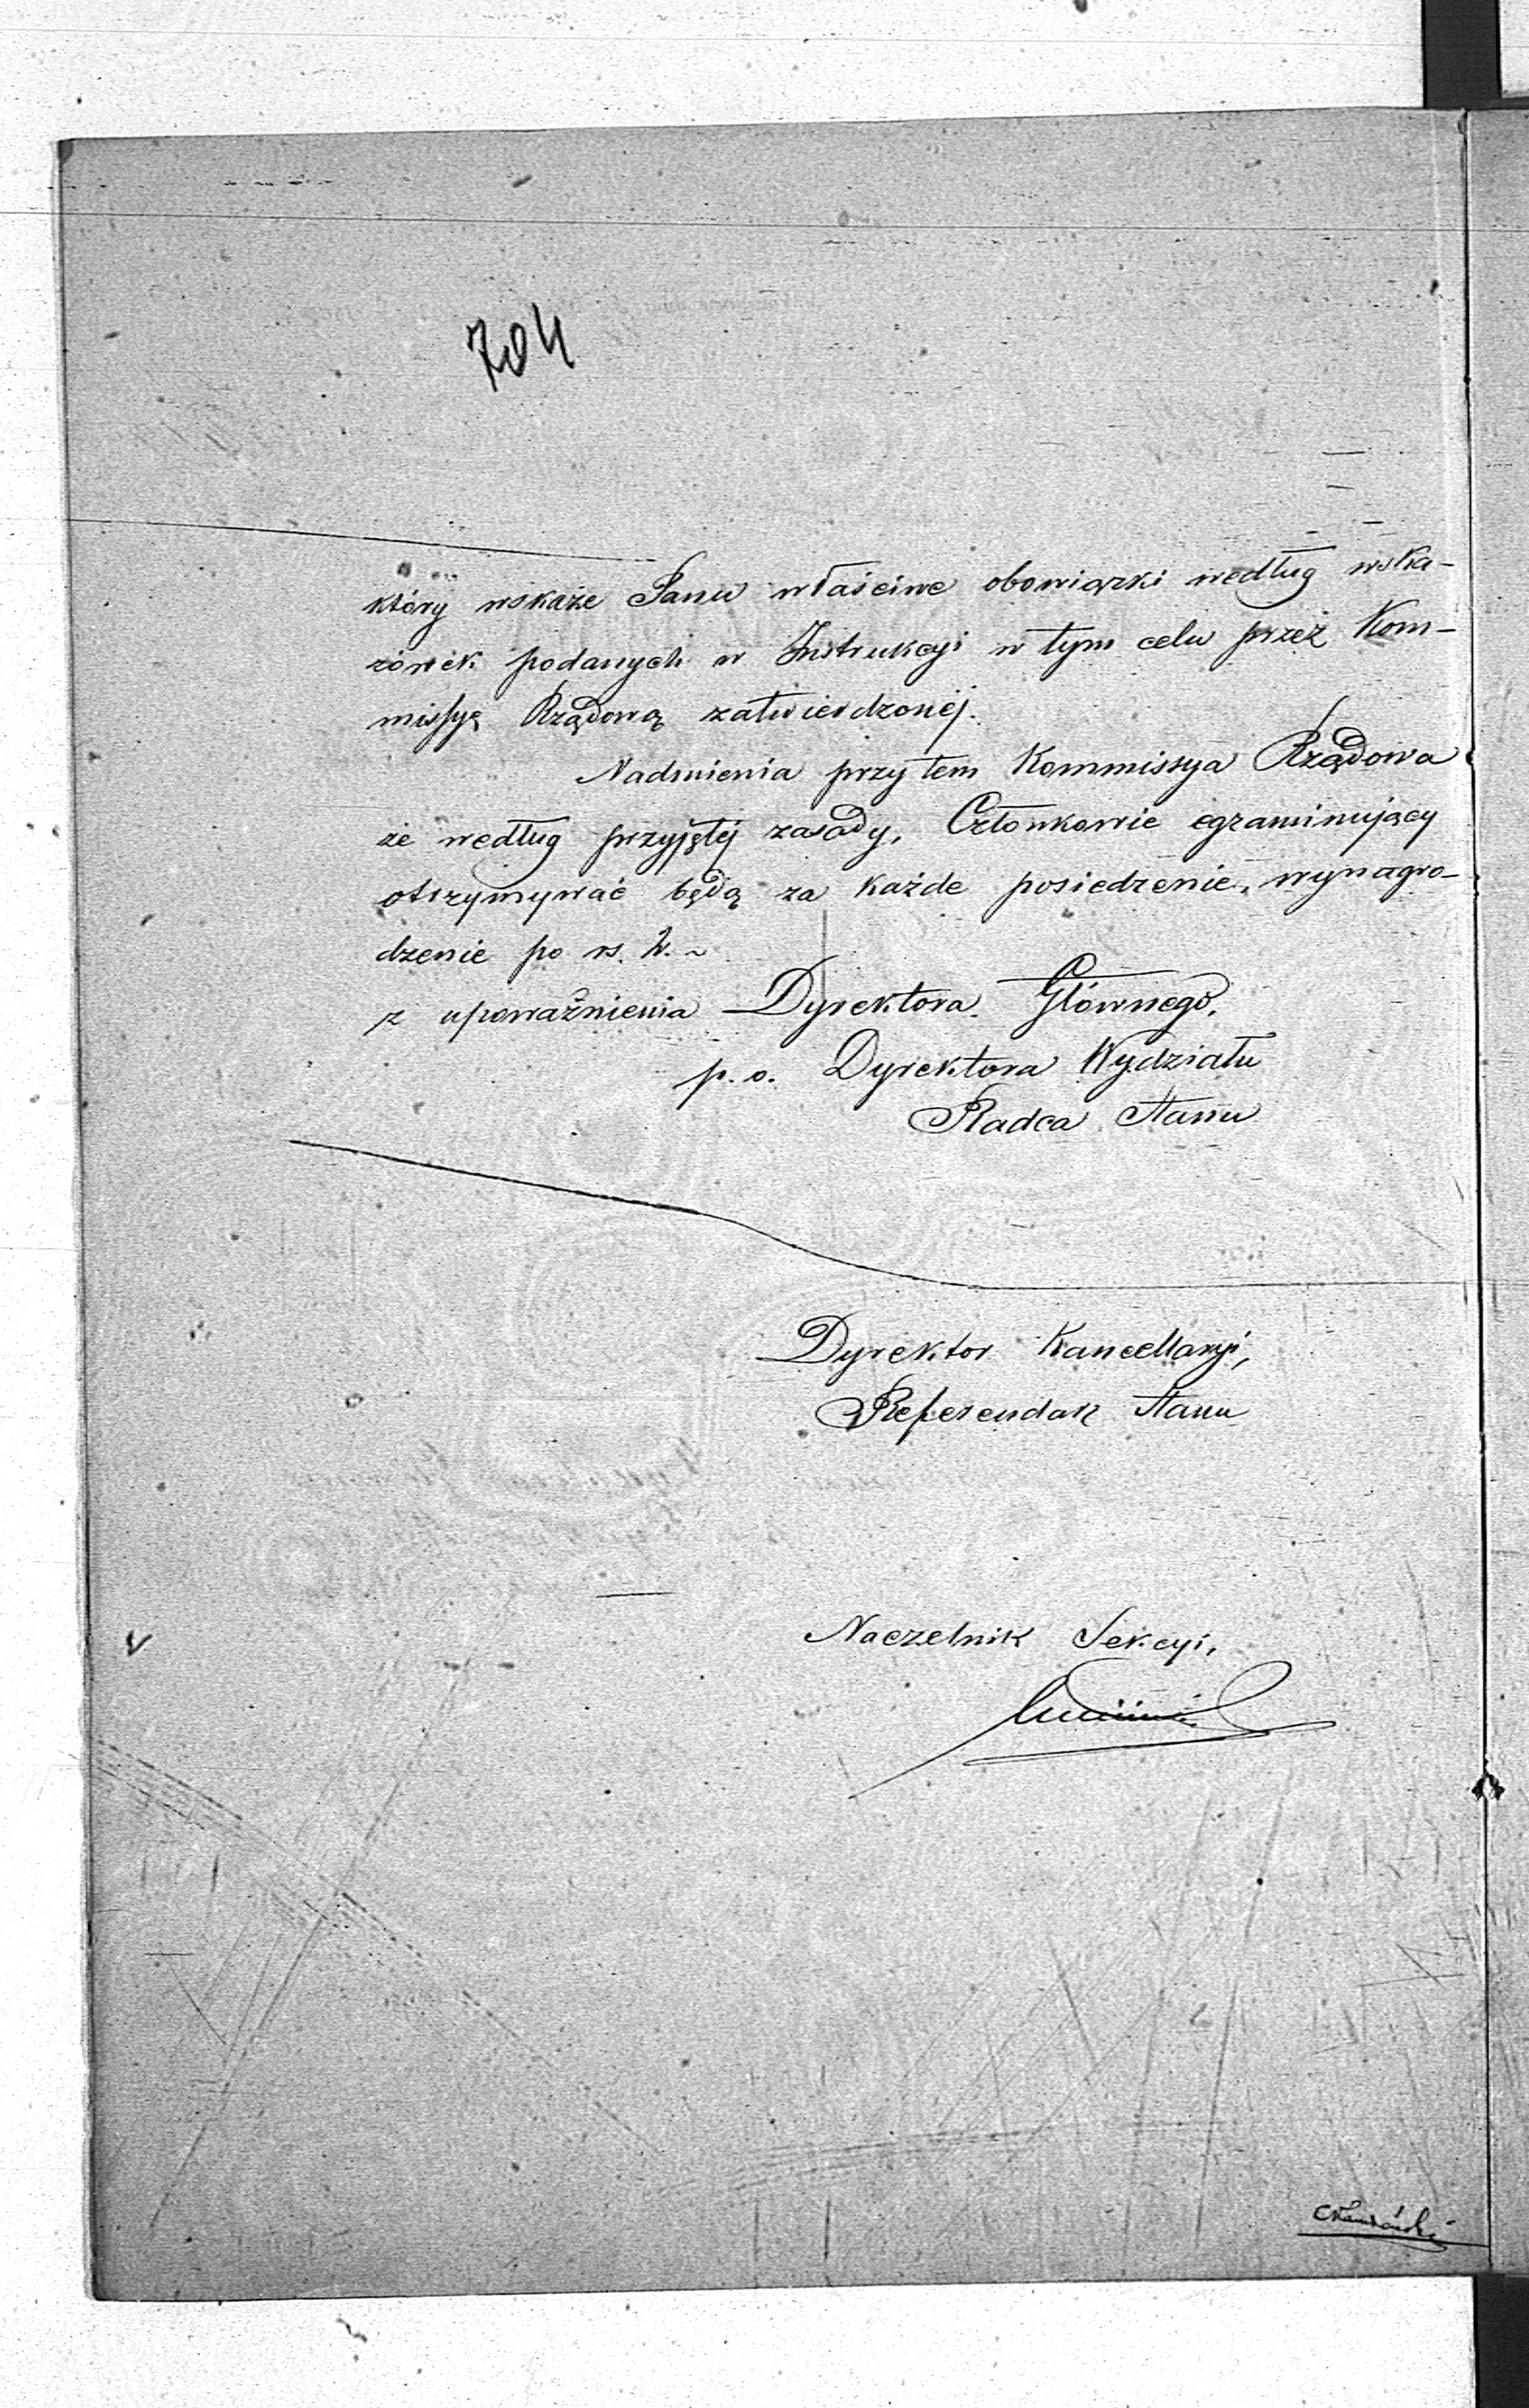 704
który wskaże Panu właściwe obowiązki według wska-
zówek podanych w Instrukcyi w tym celu przez Kom-
missyę Rządową zatwierdzonéj.
Nadmienia przytem Kommissya Rządowa
że według przyjętéj zasady, Członkowie egzaminujący
otrzymywać będą za każde posiedzenie, wynagro-
dzenie po rs. 2. ~
z upoważnienia Dyrektora Głównego,
p. o. Dyrektora Wydziału
Radca Stanu
Dyrektor Kancellaryi,
Referendarz Stanu
Naczelnik Sekcyi,